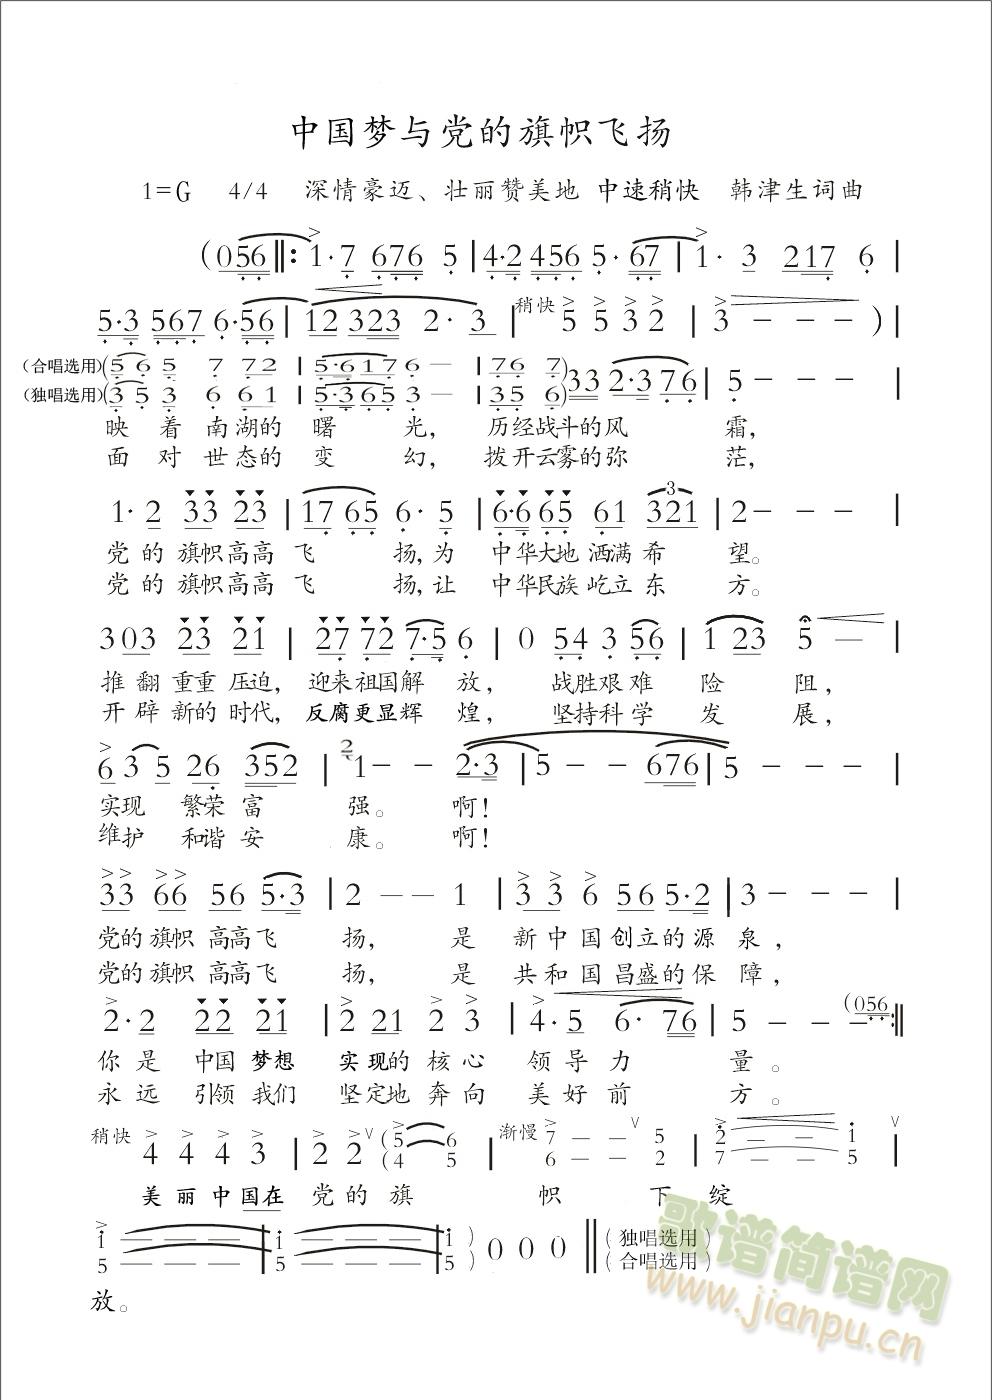 中国梦与党的旗帜飞扬
1=G 4/4 深情豪迈、壮丽赞美地 中速稍快 韩津生词曲
(056‖: 1·7 676 5 | 4·2 456 5· 67 | 1· 3 217 6 |
5·3 567 6·56 | 12 323 2· 3 | 稍快 5 5 3 2 | 3 － － － ) |
(合唱选用)(5 6 5 7 72 | 5·617 6 － | 76 7)
(独唱选用)(3 5 3 6 61 | 5·365 3 － | 35 6) 33 2·3 76 | 5 － － － |
映着南湖的曙光，历经战斗的风霜，
面对世态的变幻，拨开云雾的弥茫，
1· 2 33 23 | 17 65 6· 5 | 6·6 65 61 321 | 2 － － － |
党的旗帜高高飞扬，为中华大地洒满希望。
党的旗帜高高飞扬，让中华民族屹立东方。
3 03 23 21 | 27 72 7·5 6 | 0 54 3 56 | 1 23 5 － |
推翻重重压迫，迎来祖国解放，战胜艰难险阻，
开辟新的时代，反腐更显辉煌，坚持科学发展，
6 3 5 26 352 | 2 1 － － 2·3 | 5 － － 676 | 5 － － － |
实现繁荣富强。啊！
维护和谐安康。啊！
33 66 56 5·3 | 2 － － 1 | 3 3 6 56 5·2 | 3 － － － |
党的旗帜高高飞扬，是新中国创立的源泉，
党的旗帜高高飞扬，是共和国昌盛的保障，
2·2 22 21 | 2 21 2 3 | 4·5 6· 76 | 5 － － － (056 :‖
你是中国梦想实现的核心领导力量。
永远引领我们坚定地奔向美好前方。
稍快 4 4 4 3 | 2 2 ∨ (5 6 | 渐慢 7 － － ∨ 5 | 2 － － 1 ∨ |
(4 5 6 － － 2 7 － － 5
美丽中国在党的旗帜下绽
1 － － － | 1 － － － | 1 ) 0 0 0 ‖ (独唱选用)
5 － － － | 5 － － － | 5 ) (合唱选用)
放。
歌谱简谱网
www.jianpu.cn